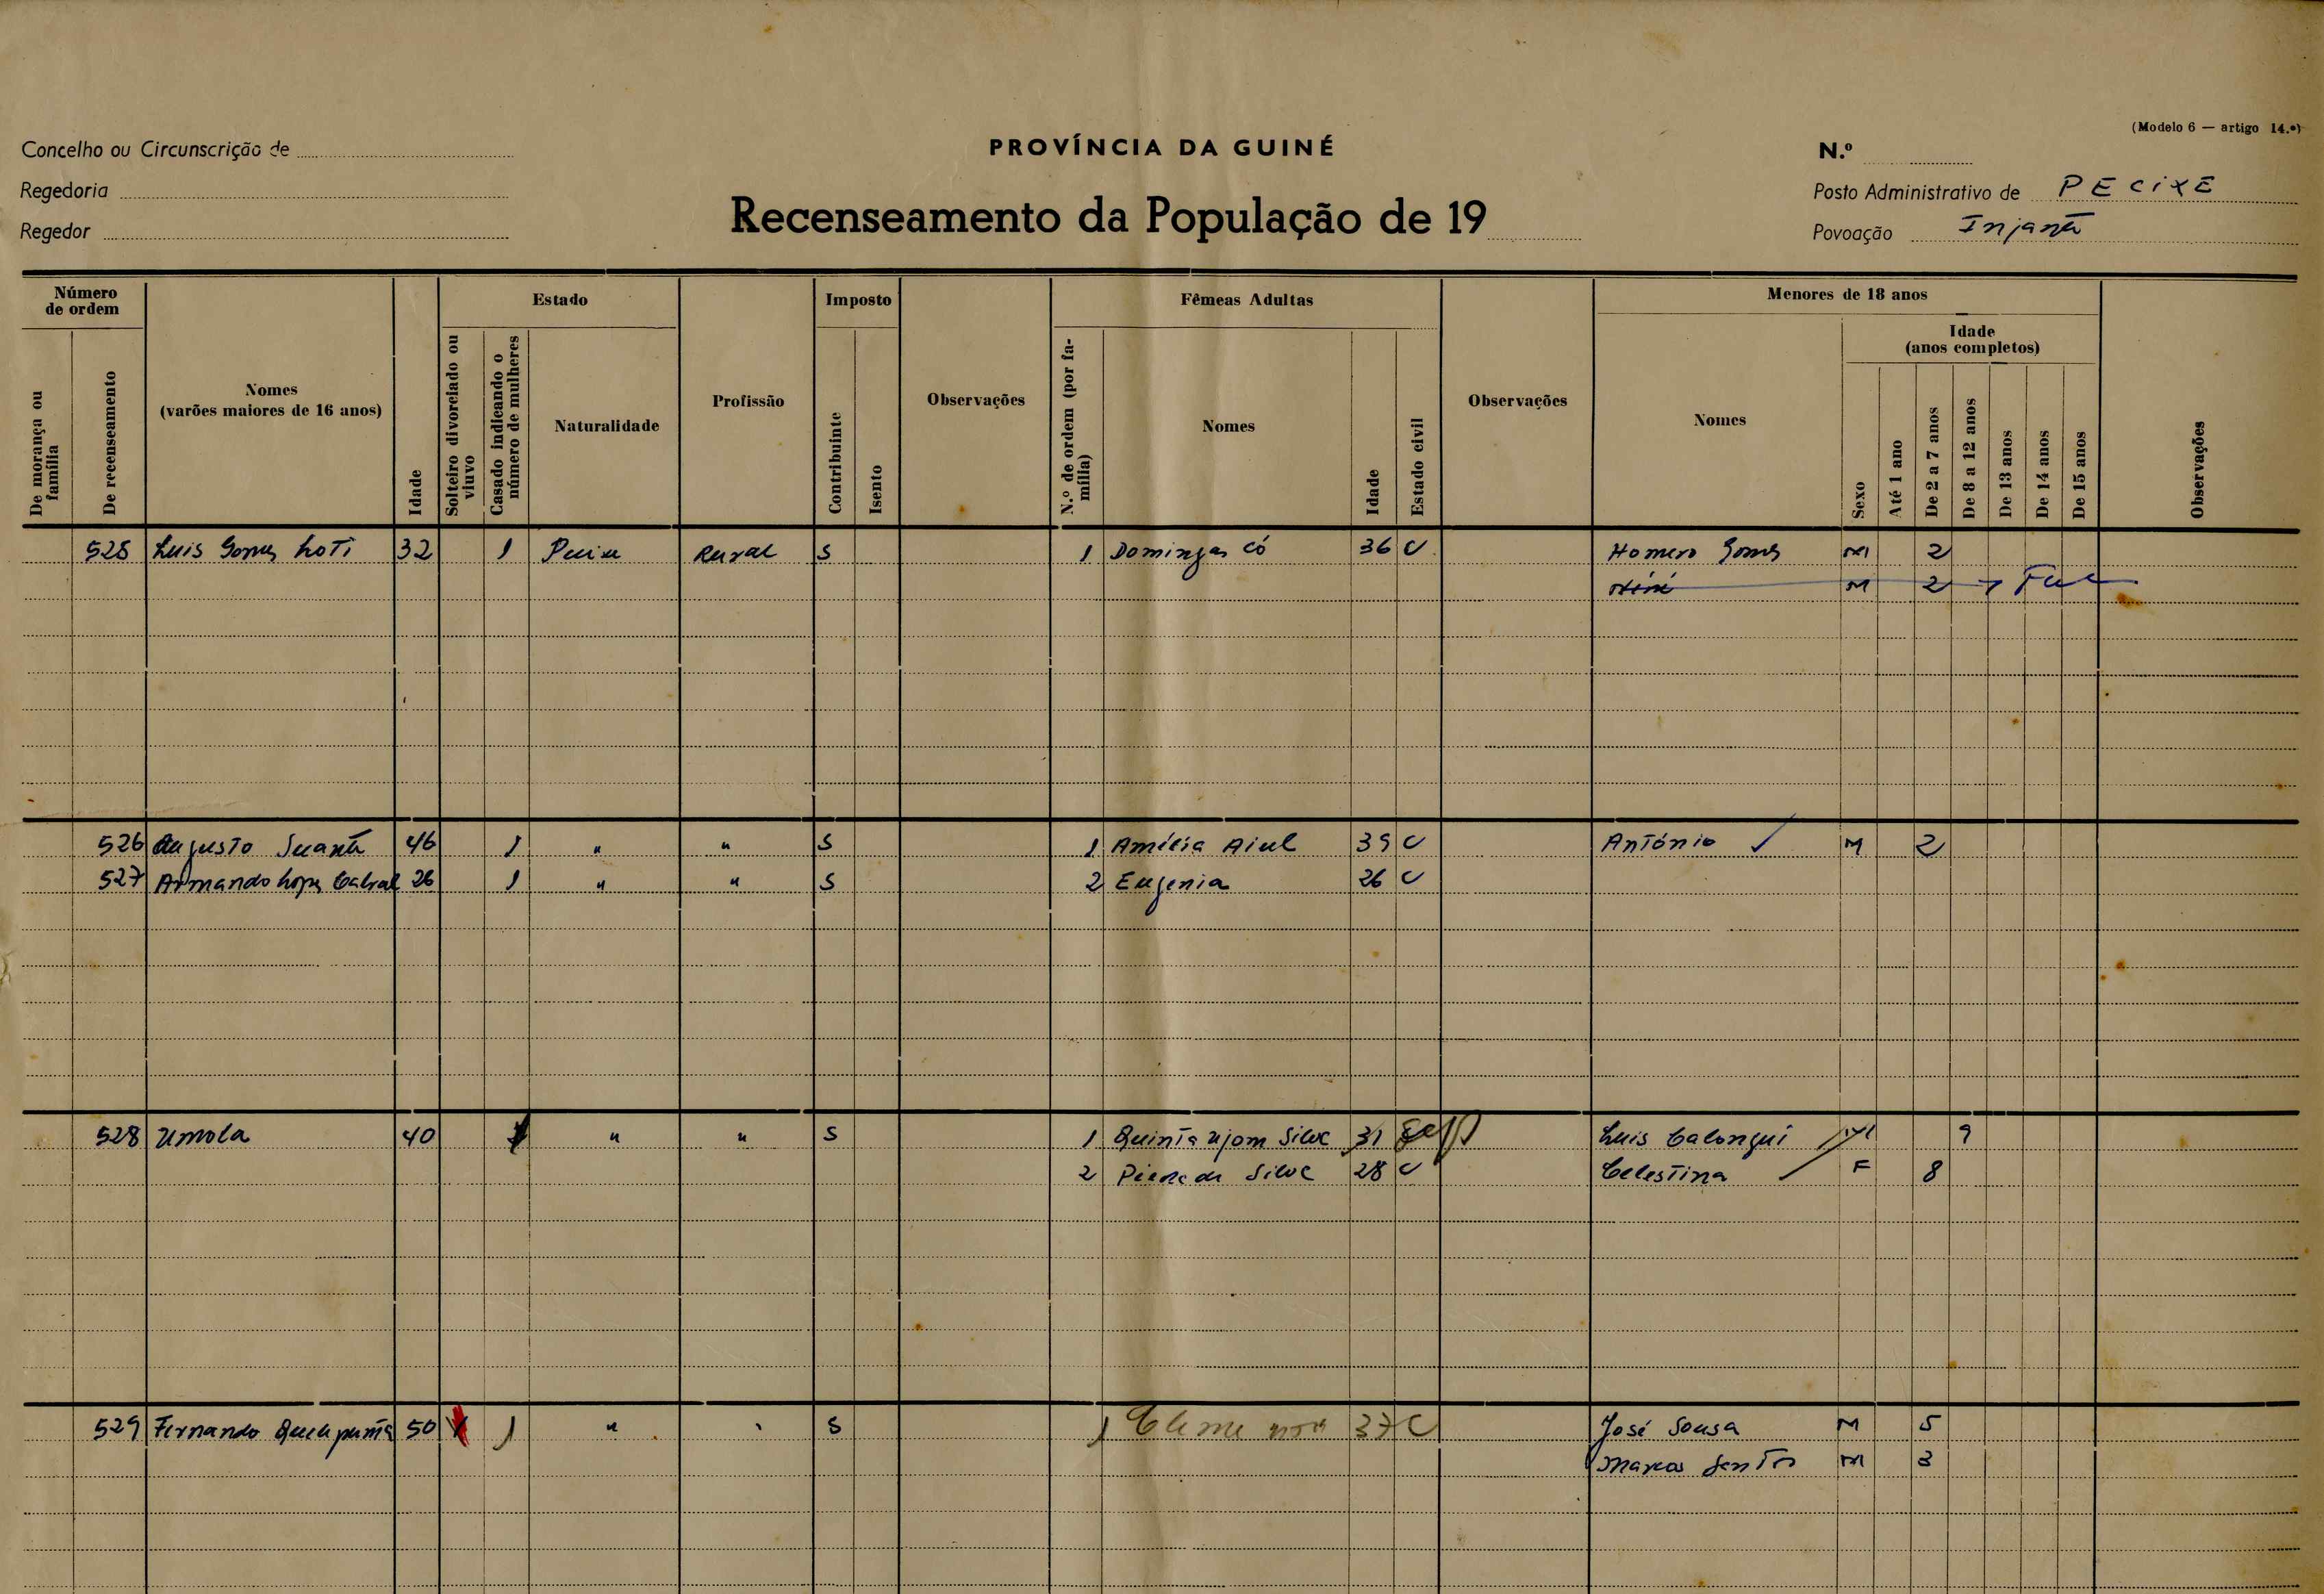 (Modelo 6 — artigo 14.º)
Concelho ou Circunscrição de
PROVÍNCIA DA GUINÉ
N.º
Regedoria
Posto Administrativo de PECIXE
Recenseamento da População de 19
Regedor
Povoação Injanta
Número de ordem
De morança ou família
De recenseamento
Nomes
(varões maiores de 16 anos)
Idade
Estado
Solteiro divorciado ou viuvo
Casado indicando o número de mulheres
Naturalidade
Profissão
Imposto
Contribuinte
Isento
Observações
Fêmeas Adultas
N.º de ordem (por família)
Nomes
Idade
Estado civil
Observações
Menores de 18 anos
Nomes
Sexo
Idade
(anos completos)
Até 1 ano
De 2 a 7 anos
De 8 a 12 anos
De 13 anos
De 14 anos
De 15 anos
Observações
525 Luis Gomes 32 1 Rural S 1 Domingas Có 36 C Homero Gomes M 2
M 2
526 Augusto 46 1 " " S 1 Amélia 39 C António M 2
527 Armando Lopes Cabral 26 1 " " S 2 Eugenia 26 C
528 Umola 40 " " S 1 Quinta 31 Luis M 9
2 28 C Celestina F 8
529 Fernando 50 1 " S 1 37 C José Sousa M 5
M 3